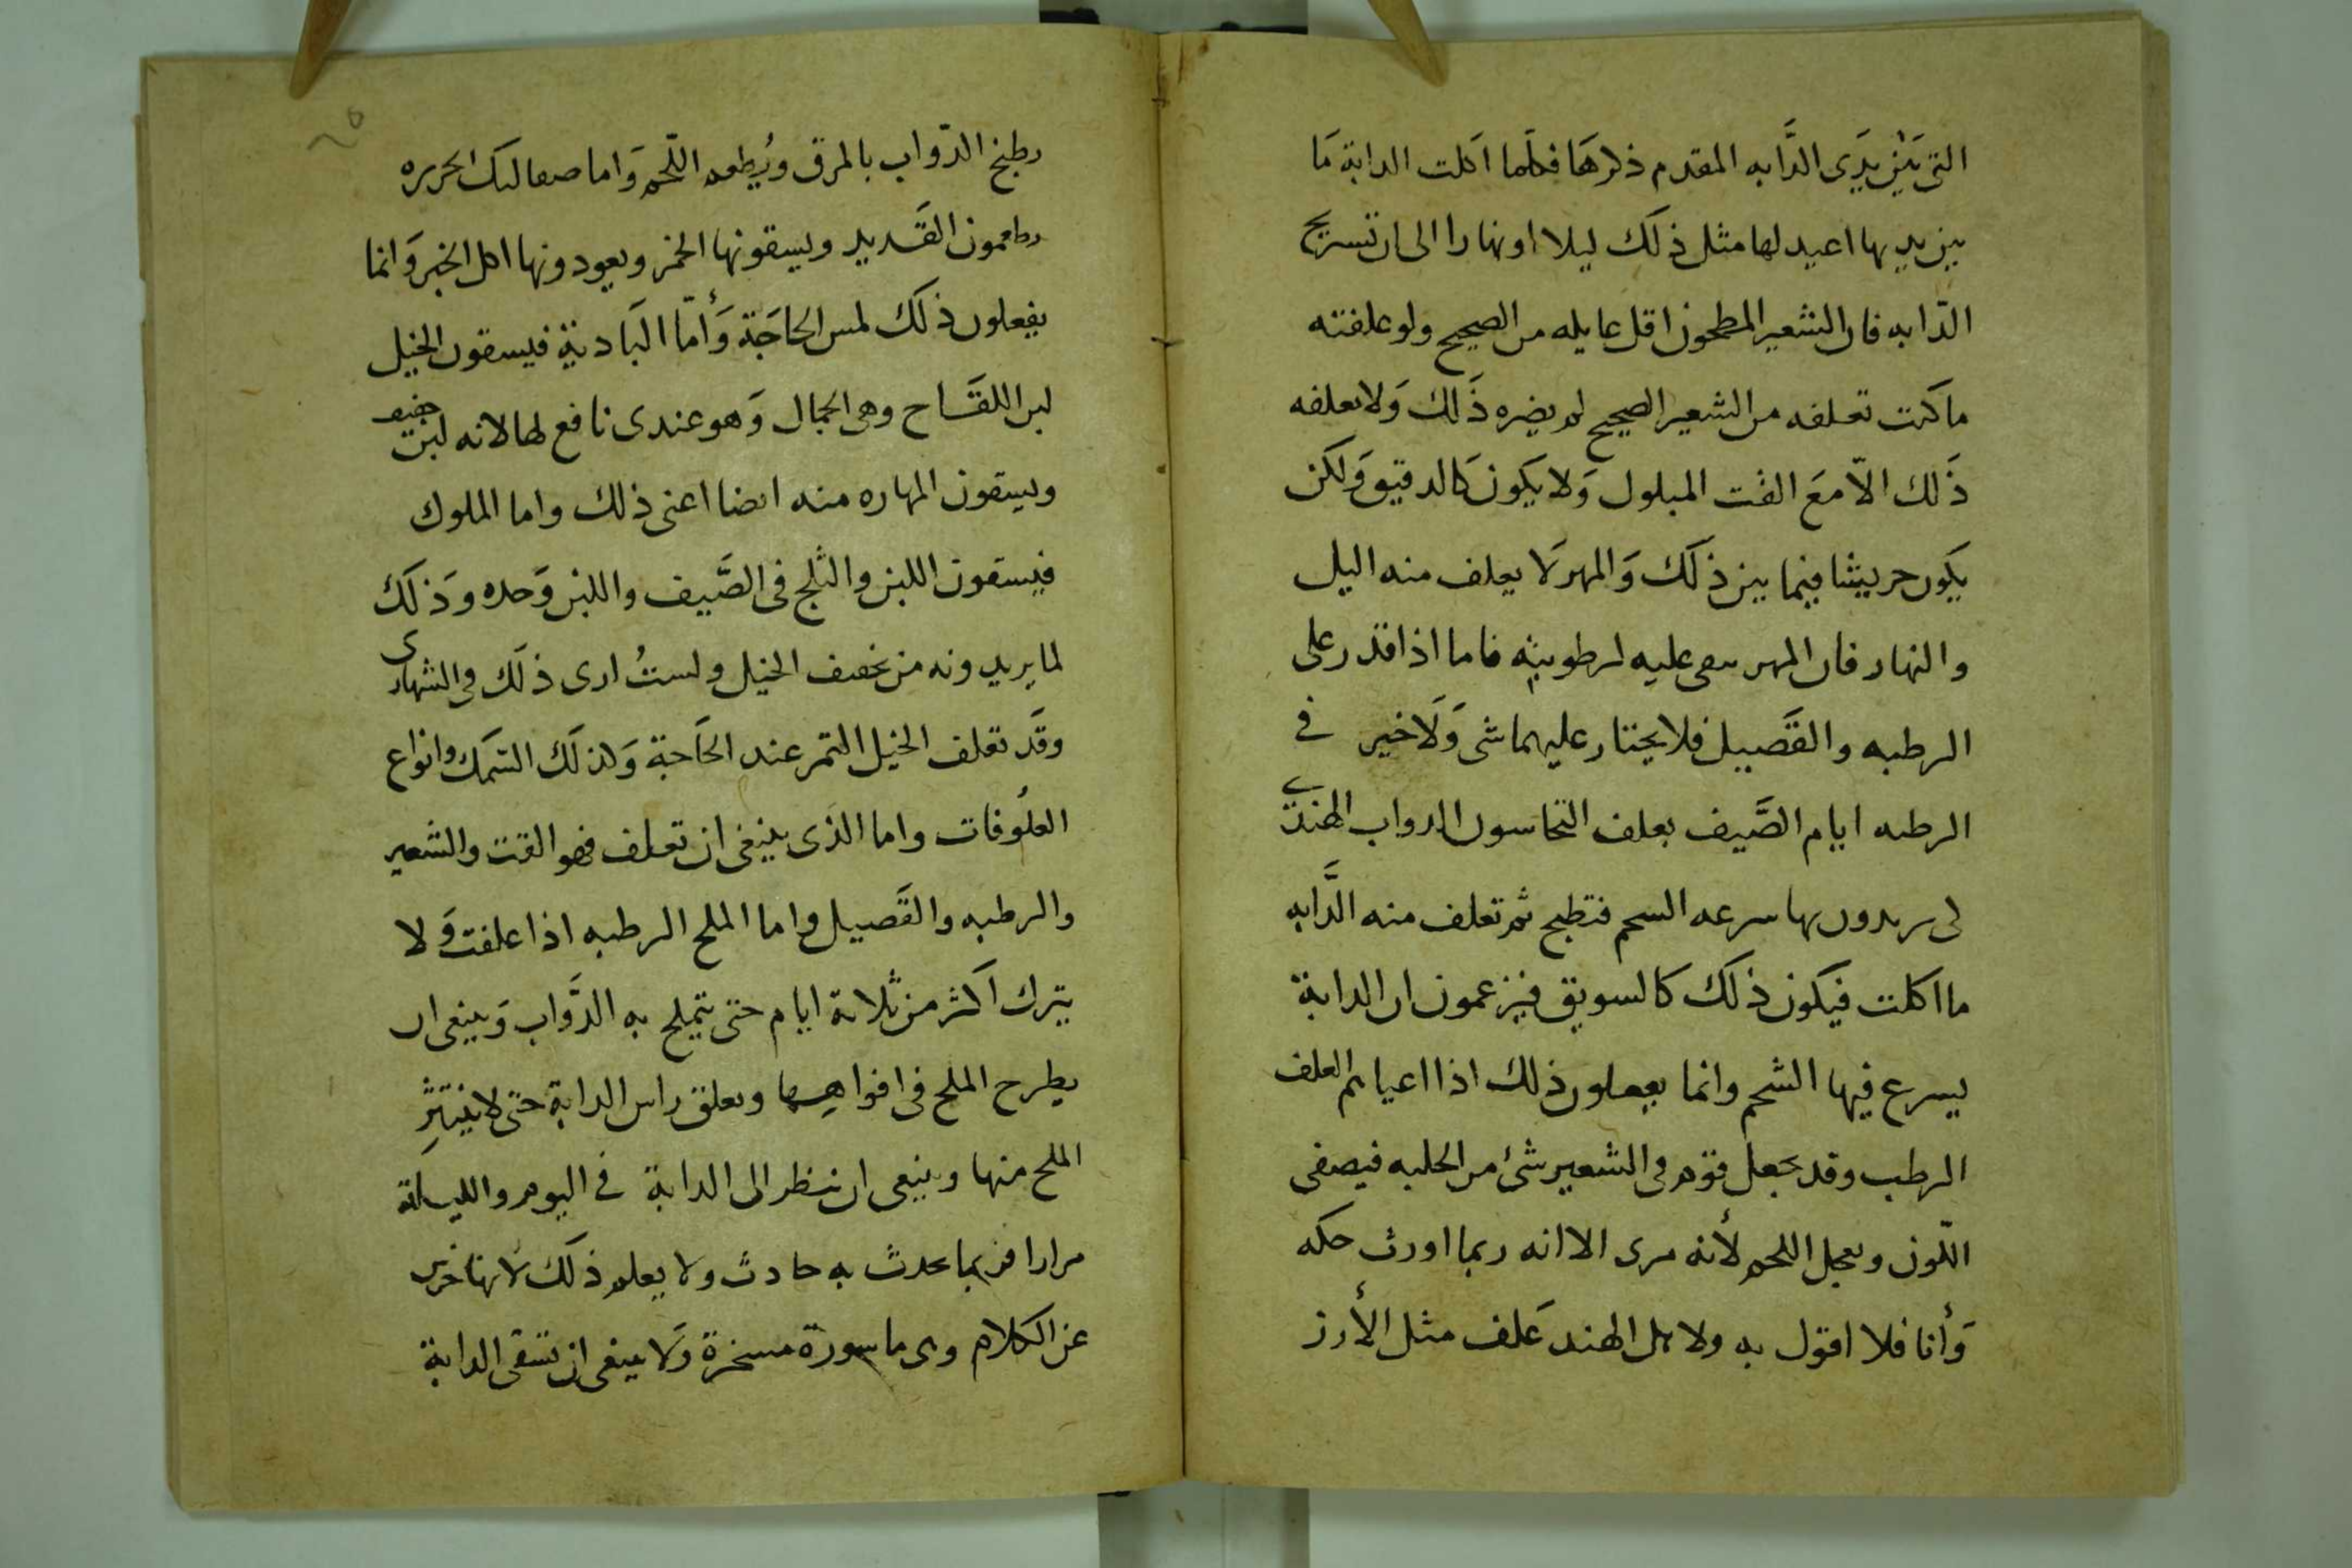 التى بَيْن يَدَى الدَّابه المقدم ذكرهَا فكلما اكلت الدابة مَا
بين يديها اعيد لها مثل ذلك ليلا او نهارا الى ان تستريح
الدّابه فان الشعير المطحون اقل عايله من الصحيح ولو علفته
ما كنت تعلفه من الشعير الصحيح لم يضره ذَلك وَلا تعلفه
ذَلك الاّ مَعَ القت المبلول وَلا يكون كَالدقيق وَلكن
يَكون حريشا فيما بين ذلك وَالمهر لَا يعلف منه اليل
والنهار فان المهر عليه لرطوبته فاما اذا قدر على
الرطبه والقَصيل فلا يختار عليهما شى وَلَا خير فى
الرطبه ايام الصَّيف يعلف النخاسون الدواب الهندى
لى يريدون بها سرعه الشحم فتطبخ ثم تعلف منه الدَّابه
ما اكلت فيكون ذلك كالسويق فيزعمون ان الدابة
يسرع فيها الشحم وانما يفعلون ذلك اذا اعياهم العلف
الرطب وقد يجعل قوم فى الشعير شئ من الحلبه فيصفى
اللّون ويعجل اللحم لأنه مرى الا انه ربما اورث حكه
وَأنا فلا اقول به ولاهل الهند عَلف مثل الأرز
يطبخ الدّواب بالمرق ويُطعم اللّحم وَاما صعاليك الجزيره
يطعمون القَديد ويسقونها الخمر ويعودونها اكل الخبز وَانما
يفعلون ذلك لمس الحاجَة وَأمّا البَادية فيسقون الخيل
لبن اللقَاح وهى الجمال وَهو عندى نافع لها لانه لبن خفيف
ويسقون المهاره منه ايضا اعنى ذلك واما الملوك
فيسقون اللبن والثلج فى الصَّيف واللبن وَحده وَذلك
لما يريدونه من تخفيف الخيل ولستُ ارى ذلك فى الشهارى
وقَد تعلف الخيل التمر عند الحَاجة وَكذلك السَمك وانواع
العلُوفات واما الذى ينبغى ان تعلف فهو القت والشعير
والرطبه والقَصيل واما الملح الرطبه اذا علفت وَلا
يترك اكثر من ثلاثة ايام حتى يتملح به الدَّواب وَينبغى ان
يطرح الملح فى افواهها ويعلق راس الدابة حتى لا ينتثر
الملح منها وينبغى ان ينظر الى الدابة فى اليوم والليلة
مرارا فربما يحدث به حادث ولا يعلم ذلك لانها خرس
عن الكلام وهى ماسورة مسخرة وَلا ينبغى ان تسقى الدابة